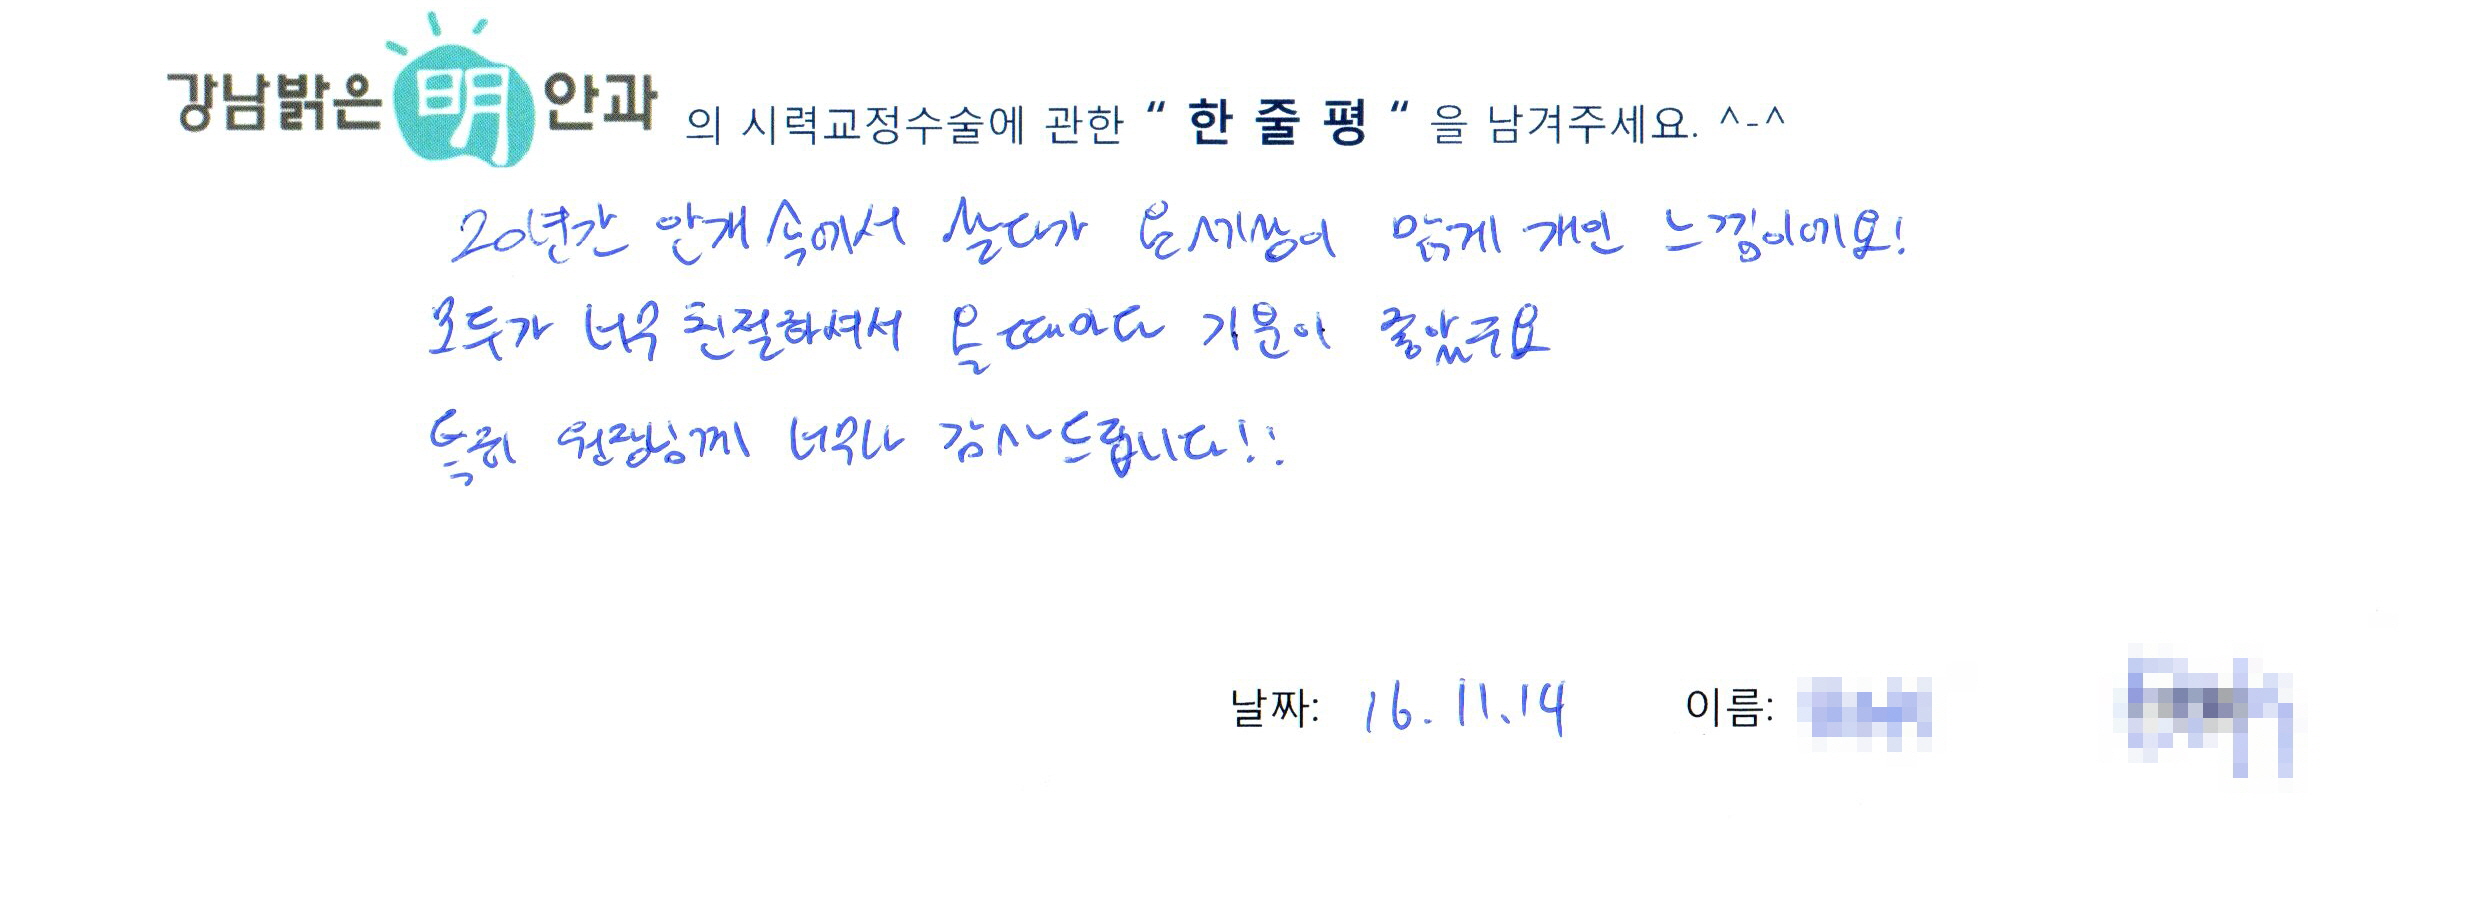 강남밝은 明 안과 의 시력교정수술에 관한 “ 한 줄 평 “ 을 남겨주세요. ^-^
20년간 안개 속에서 살다가 온세상이 맑게 개인 느낌이에요!
모두가 너무 친절하셔서 올때마다 기분이 좋았구요
특히 원장님께 너무나 감사드립니다!!
날짜: 16.11.14 이름: